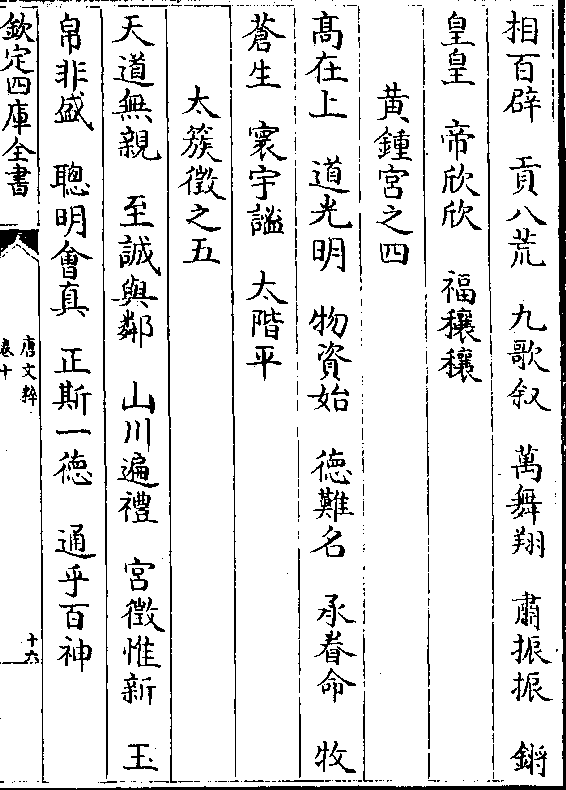 相百辟　貢八荒　九歌叙　萬舞翔　肅振振　鏘
皇皇　帝欣欣　福穰穰
黄鍾宮之四
髙在上　道光明　物資始　徳難名　承眷命　牧
蒼生　寰宇謐　太階平
太簇徴之五
天道無親　至誠與鄰　山川遍禮　宮徴惟新　玉
帛非盛　聰明會真　正斯一徳　通乎百神
欽定四庫全書
唐文粹
卷十
十六